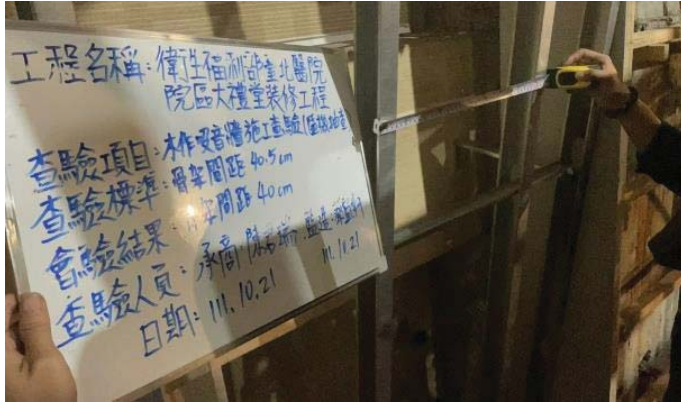 工程名稱：衛生福利部臺北醫院
院區大禮堂裝修工程
查驗項目：木作吸音牆施工查驗(隨機抽查)
查驗標準：骨架間距 40.5cm
會驗結果：骨架間距 40cm
查驗人員：承商：陳 監造：
111.10.21
日期：111.10.21